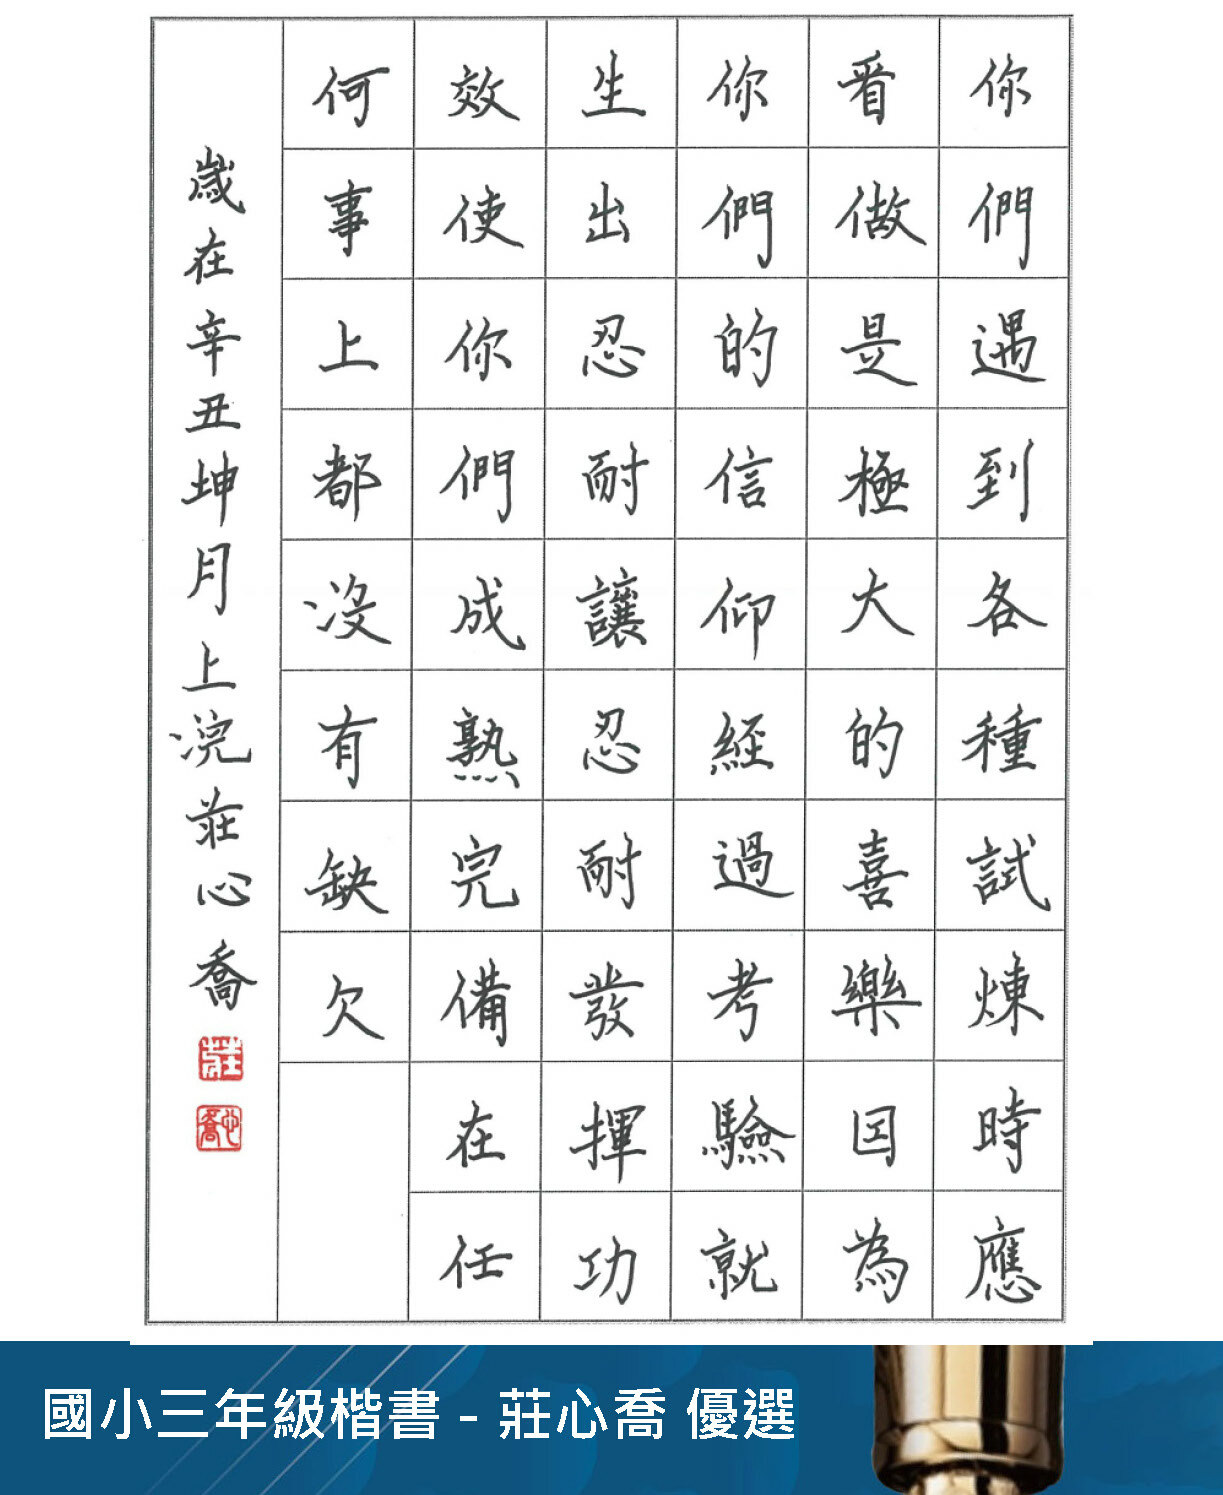 你們遇到各種試煉時應
看做是極大的喜樂因為
你們的信仰經過考驗就
生出忍耐讓忍耐發揮功
效使你們成熟完備在任
何事上都沒有缺欠
歲在辛丑坤月上浣莊心喬
莊
心喬
國小三年級楷書 - 莊心喬 優選